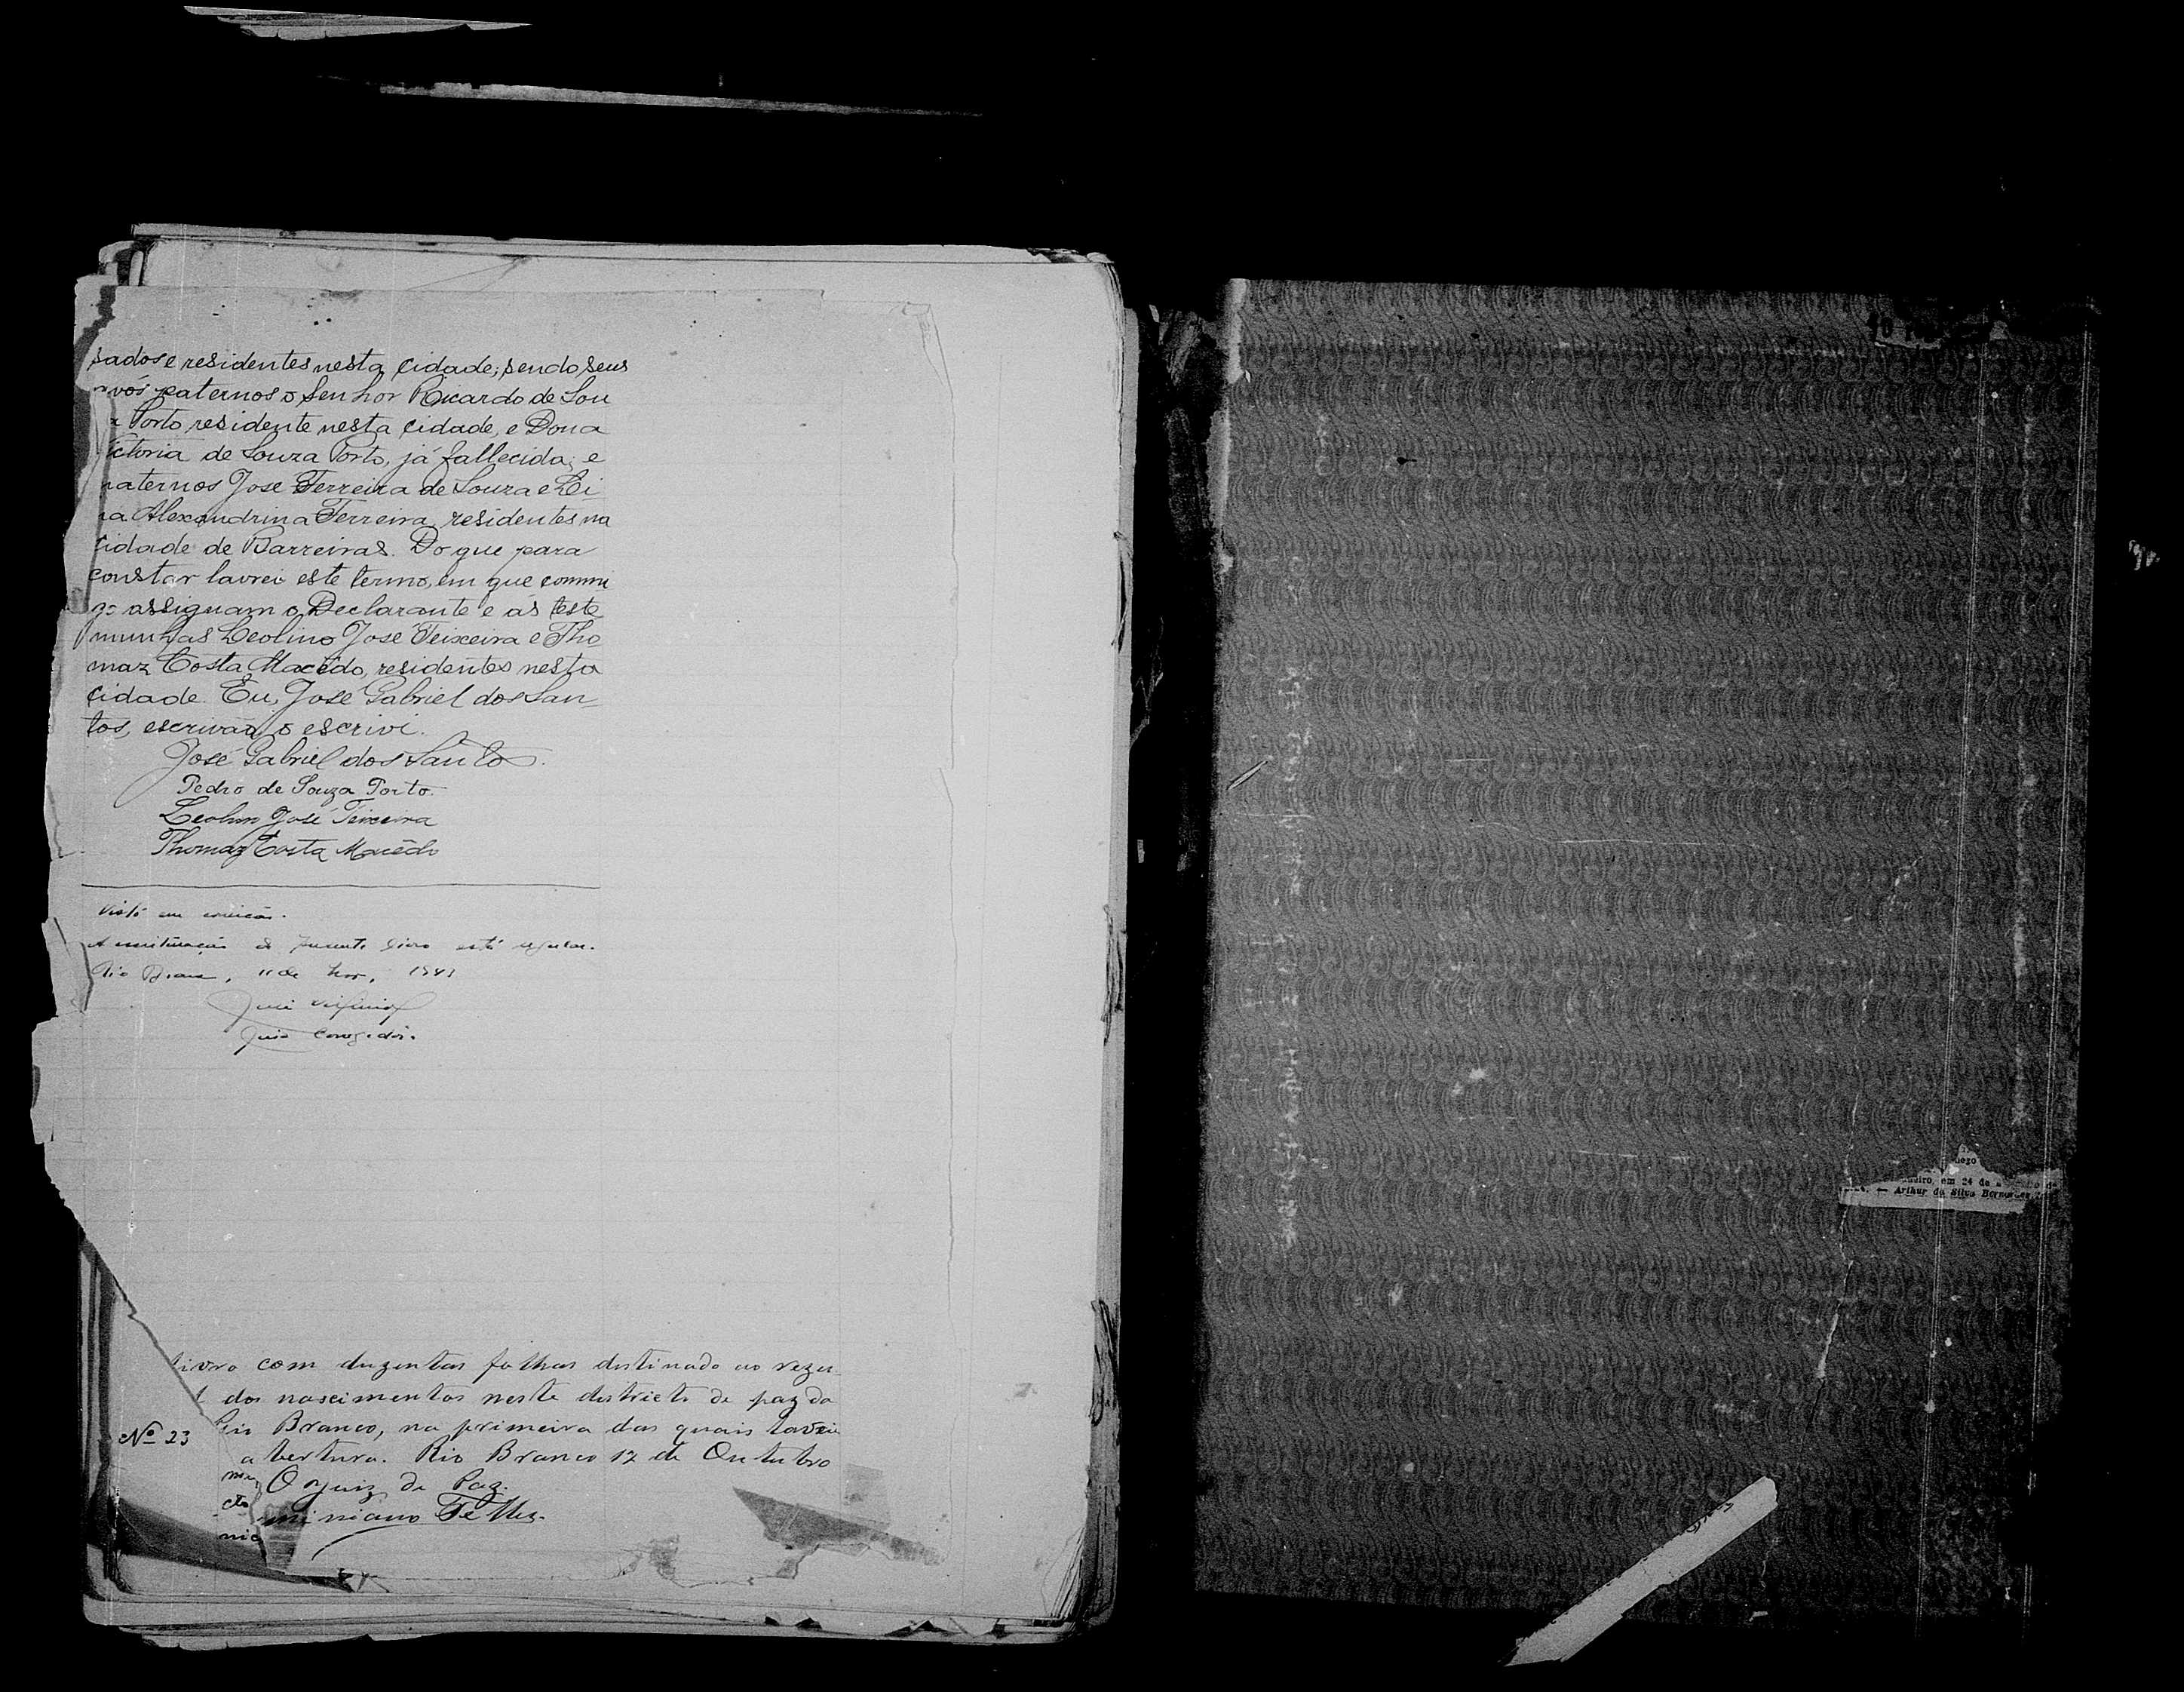 sados e residentes nesta cidade; sendo seus
avós paternos o Senhor Ricardo de Sou
a Porto residente nesta cidade, e Dona
ictoria de Souza Porto, já fallecida; e
maternos José Ferreira de Souza e Lei
na Alexandrina Ferreira, residentes na
cidade de Barreiras. Do que para
constar lavrei este termo, em que commi
go assignam o Declarante e as teste
munhas Leolino José Teixeira e Tho
maz Costa Macêdo, residentes nesta
cidade. Eu, José Gabriel dos San-
tos, escrivão o escrivi.
José Gabriel dos Santos.
Pedro de Souza Porto.
Leolino José Teixeira
Thomaz Costa Macêdo
Visto em correição.
A escrituração do presente livro está regular.
Rio Branco, 11 de 1941
Juiz Corregedor.
livro com duzentas folhas distinado ao rezis
dos nascimentos neste districto de paz do
Rio Branco, na primeira das quais lavrei
Nº 23
abertura. Rio Branco 12 de Outubro
O Juiz de Paz.
miniano Telles.
cto
nic
neiro, em 24 de
— Arthur da Silva Bernardes